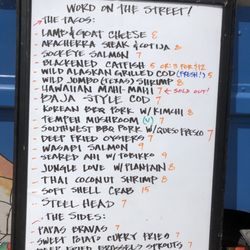 WORD ON THE STREET!
THE TACOS:
LAMB & GOAT CHEESE 8
ARACHERRA STEAK & COTIJA 8
SOCKEYE SALMON 7
BLACKENED CATFISH 5 OR 3 FOR 12
WILD ALASKAN GRILLED COD (FRESH!) 5
WILD JUMBO (TEXAS) SHRIMP 8
HAWAIIAN MAHI-MAHI 7 ← SOLD OUT!
BAJA STYLE COD 7
KOREAN BBQ PORK W/KIMCHI 8
TEMPEH MUSHROOM (V) 7
SOUTHWEST BBQ PORK W/QUESO FRESCO 7
DEEP FRIED OYSTERS 7
WASABI SALMON 9
SEARED AHI W/TOBIKKO 9
JUNGLE LOVE W/PLANTAIN 8
THAI COCONUT SHRIMP 8
SOFT SHELL CRAB 15
STEEL HEAD 7
THE SIDES:
PAPAS BRAVAS 7
SWEET POTATO CURRY FRIES 7
DEEP FRIED BRUSSELS SPROUTS 7